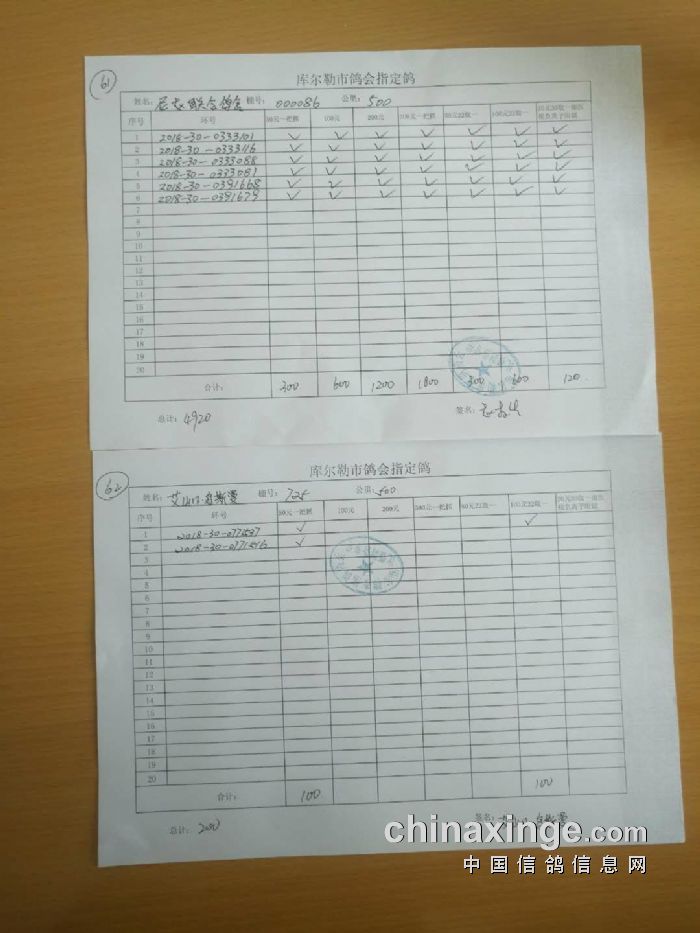 61
库尔勒市鸽会指定鸽
姓名: 联合鸽舍 棚号: 000086 公里: 500
序号 环号 50元一把抓 100元 200元 300元一把抓 50元22取一 100元22取一
1 2018-30-0333101 ✓ ✓ ✓ ✓ ✓ ✓ ✓
2 2018-30-0333116 ✓ ✓ ✓ ✓ ✓ ✓ ✓
3 2018-30-0333088 ✓ ✓ ✓ ✓ ✓ ✓ ✓
4 2018-30-0333081 ✓ ✓ ✓ ✓ ✓ ✓ ✓
5 2018-30-0391668 ✓ ✓ ✓ ✓ ✓ ✓ ✓
6 2018-30-0391679 ✓ ✓ ✓ ✓ ✓ ✓ ✓
7
8
9
10
11
12
13
14
15
16
17
18
19
20
合计: 300 600 1200 1800 300 600 120
总计: 4920 签名:
62
库尔勒市鸽会指定鸽
姓名: 棚号: 725 公里: 500
序号 环号 50元一把抓 100元 200元 300元一把抓 50元22取一 100元22取一
1 2018-30-0771537 ✓ ✓
2 2018-30-0771546 ✓
3
4
5
6
7
8
9
10
11
12
13
14
15
16
17
18
19
20
合计: 100 100
总计: 200 签名:
chinaxinge.com
中国信鸽信息网